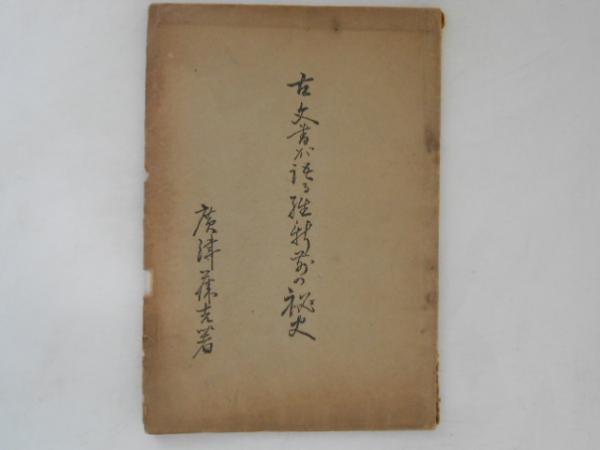 古文書が語る維新前の秘史
廣津藤吉著